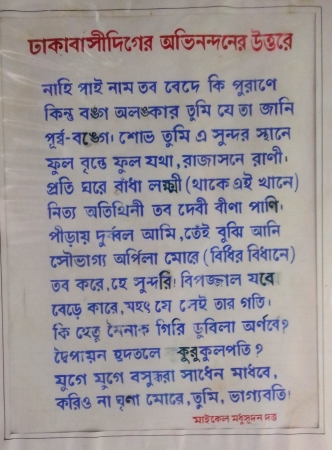 ঢাকাবাসীদিগের অভিনন্দনের উত্তরে
নাহি পাই নাম তব বেদে কি পুরাণে
কিন্তু বঙ্গ অলঙ্কার তুমি যে তা জানি
পূর্ব্ব-বঙ্গে। শোভ তুমি এ সুন্দর স্থানে
ফুল বৃন্তে ফুল যথা, রাজাসনে রাণী।
প্রতি ঘরে বাঁধা লক্ষ্মী (থাকে এই খানে)
নিত্য অতিথিনী তব দেবী বীণা পাণি।
পীড়ায় দুর্ব্বল আমি, তেঁই বুঝি আনি
সৌভাগ্য অর্পিলা মোরে (বিধির বিধানে)
তব করে, হে সুন্দরি। বিপজ্জাল যবে
বেড়ে কারে, মহৎ যে সেই তার গতি।
কি হেতু মৈনাক গিরি ডুবিলা অর্ণবে?
দ্বৈপায়ন হ্রদতলে কুরুকুলপতি?
যুগে যুগে বসুন্ধরা সাধেন মাধবে,
করিও না ঘৃণা মোরে, তুমি, ভাগ্যবতি।
মাইকেল মধুসূদন দত্ত